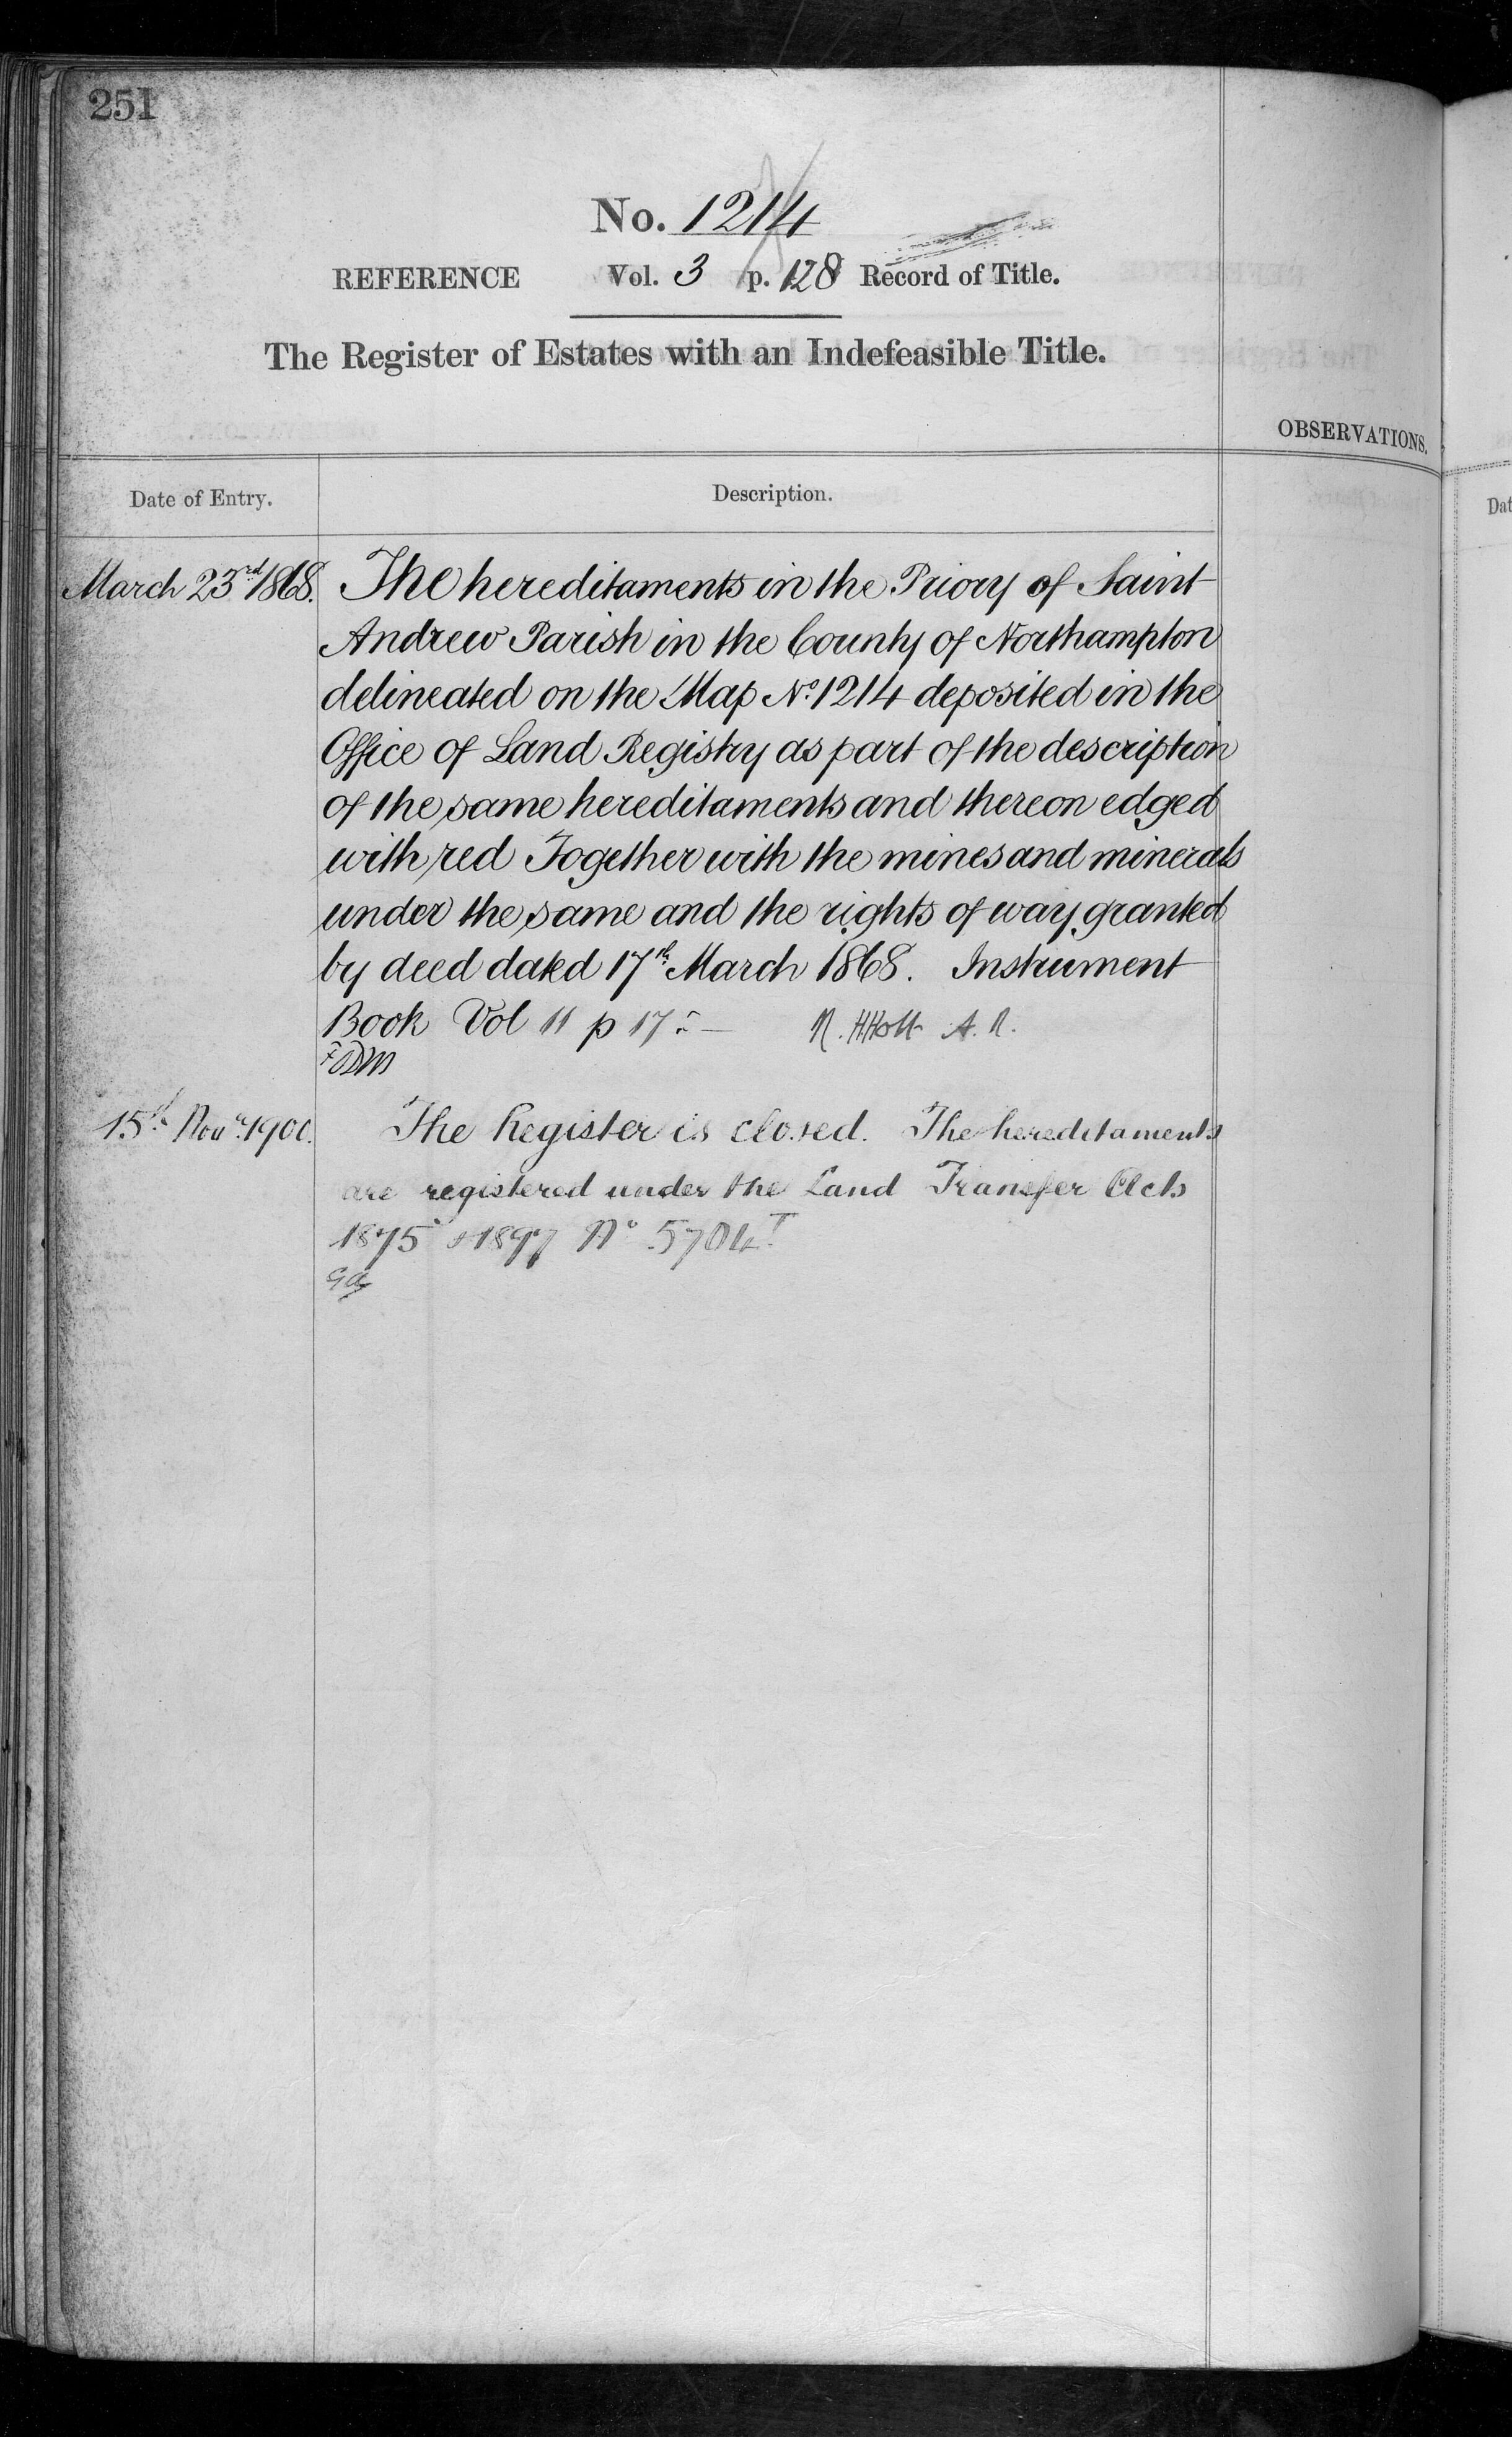 251
No. 1214
REFERENCE Vol. 3 p. 128 Record of Title.
The Register of Estates with an Indefeasible Title.
OBSERVATIONS.
Date of Entry. Description.
March 23rd 1868. The hereditaments in the Priory of Saint
Andrew Parish in the County of Northampton
delineated on the Map No. 1214 deposited in the
Office of Land Registry as part of the description
of the same hereditaments and thereon edged
with red Together with the mines and minerals
under the same and the rights of way granted
by deed dated 17th March 1868. Instrument
Book Vol 11 p 17 :- R. H. Holt A. R.
15th Novr. 1900. The Register is closed. The hereditaments
are registered under the Land Transfer Acts
1875 & 1897 No 5704
Dat